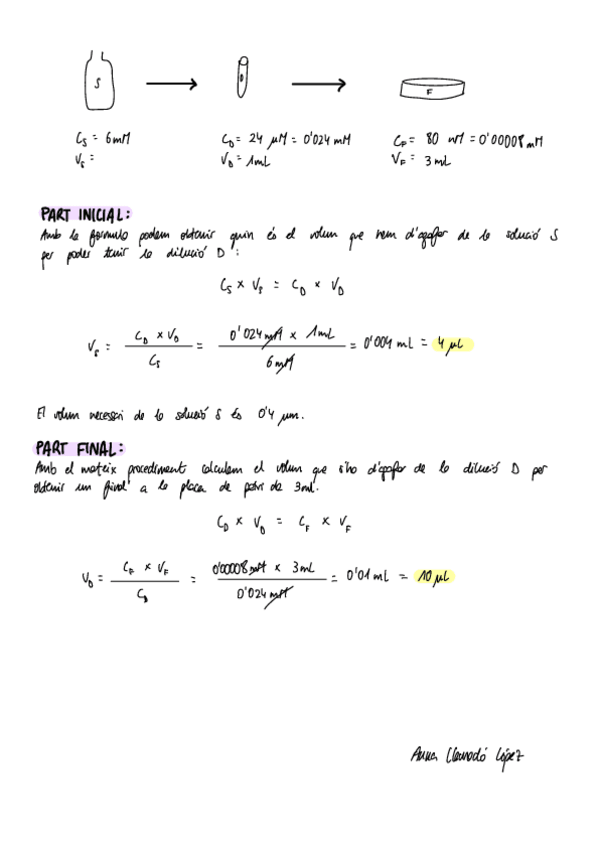 S D F
Cs = 6mM C_D = 24 µM = 0'024 mM C_F = 80 nM = 0'00008 mM
Vs = V_D = 1mL V_F = 3 mL
PART INICIAL:
Amb la formula podem obtenir quin és el volum que hem d'agafar de la solució S
per poder tenir la dilució D:
Cs × Vs = C_D × V_D
Vs = (C_D × V_D) / Cs = (0'024 mM × 1mL) / 6mM = 0'004 mL = 4 µL
El volum necessari de la solució S és 0'4 µm.
PART FINAL:
Amb el mateix procediment calculem el volum que s'ha d'agafar de la dilució D per
obtenir un final a la placa de petri de 3ml.
C_D × V_D = C_F × V_F
V_D = (C_F × V_F) / C_D = (0'00008 mM × 3mL) / 0'024 mM = 0'01 mL = 10 µL
Anna López